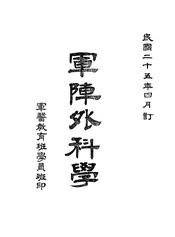 民國二十五年四月訂
軍陣外科學
軍醫教育班學員班印